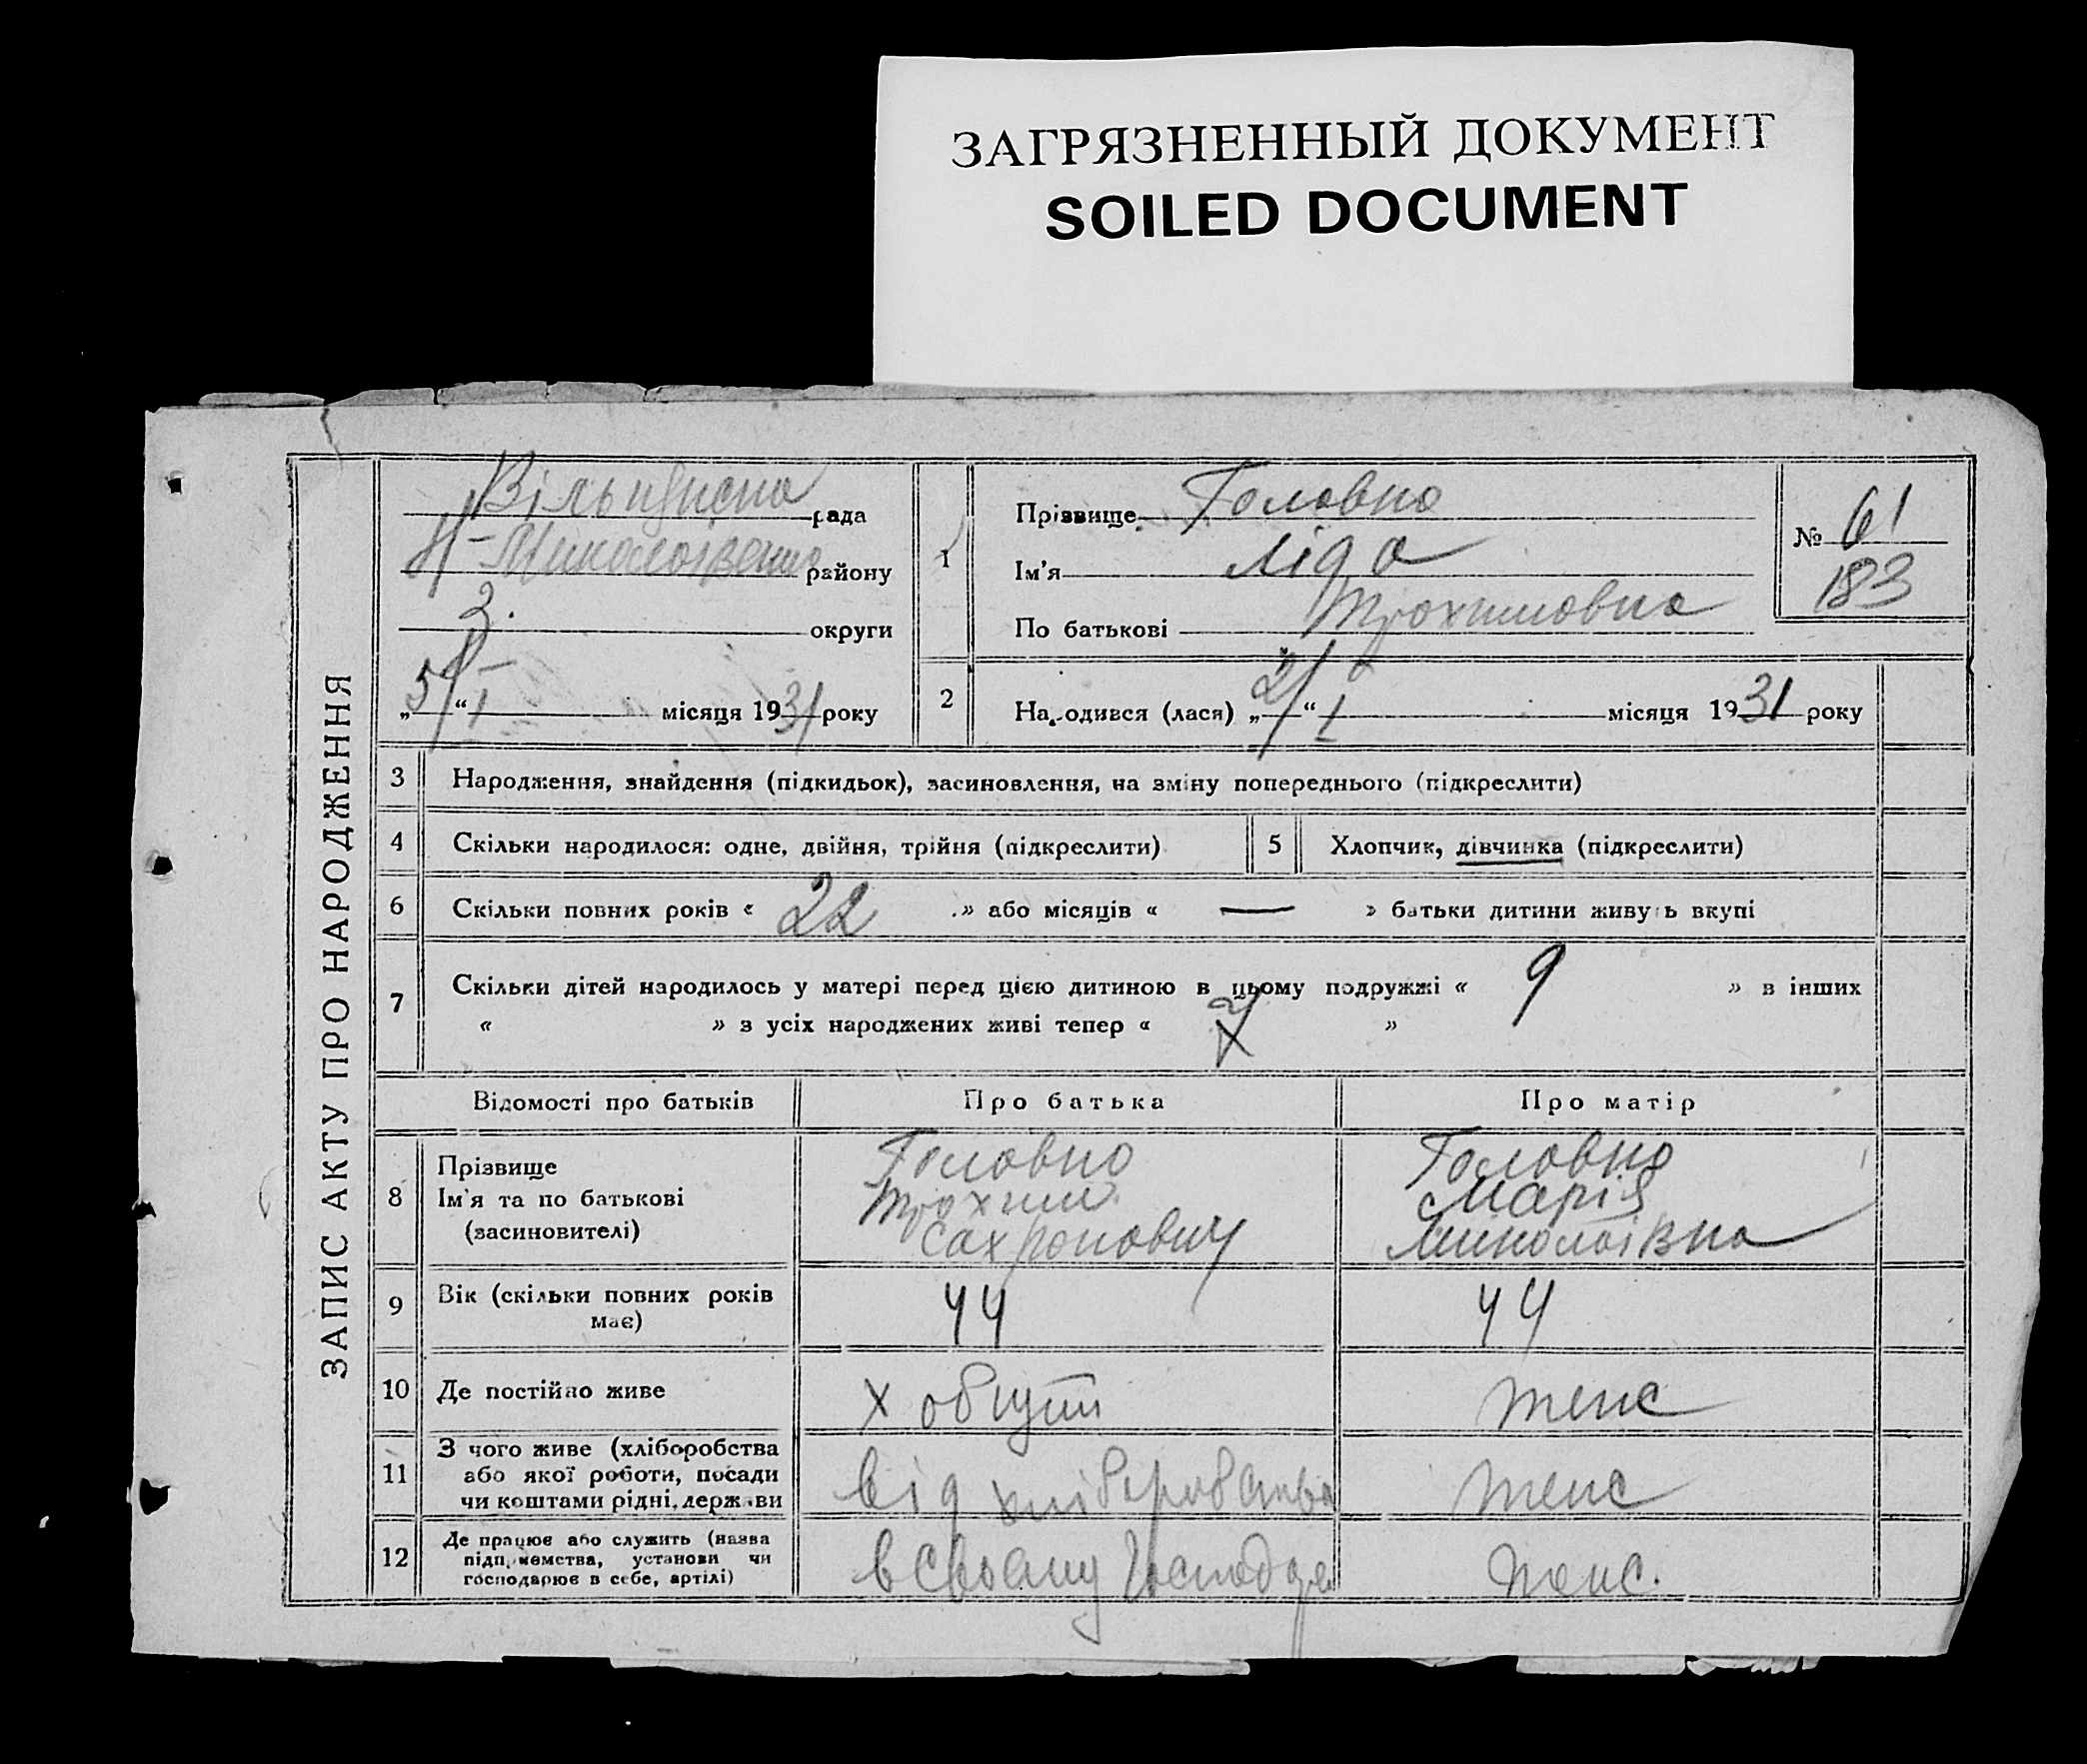 ЗАГРЯЗНЕННЫЙ ДОКУМЕНТ
SOILED DOCUMENT
ЗАПИС АКТУ ПРО НАРОДЖЕННЯ
рада
Н-Миколаївсько району
З. округи
„5“ I місяця 1931 року
1
Прізвище Головко
Ім'я Ліда
По батькові Трохимовна
№ 61
183
2 Народився (лася) „2“ I місяця 1931 року
3 Народження, знайдення (підкидьок), засиновлення, на зміну попереднього (підкреслити)
4 Скільки народилося: одне, двійня, трійня (підкреслити) 5 Хлопчик, дівчинка (підкреслити)
6 Скільки повних років « 22 .» або місяців « — » батьки дитини живуть вкупі
7 Скільки дітей народилось у матері перед цією дитиною в цьому подружжі « 9 » в інших
« » з усіх народжених живі тепер « »
Відомості про батьків Про батька Про матір
8 Прізвище Головко Головко
Ім'я та по батькові Трохим Марія
(засиновителі) Сахронович Миколаівна
9 Вік (скільки повних років має) 44 44
10 Де постійно живе х теж
11 З чого живе (хліборобства
або якої роботи, посади від хліборобства теж
чи коштами рідні, держави
12 Де працює або служить (назва
підприємства, установи чи в своему господар теж.
господарює в себе, артілі)